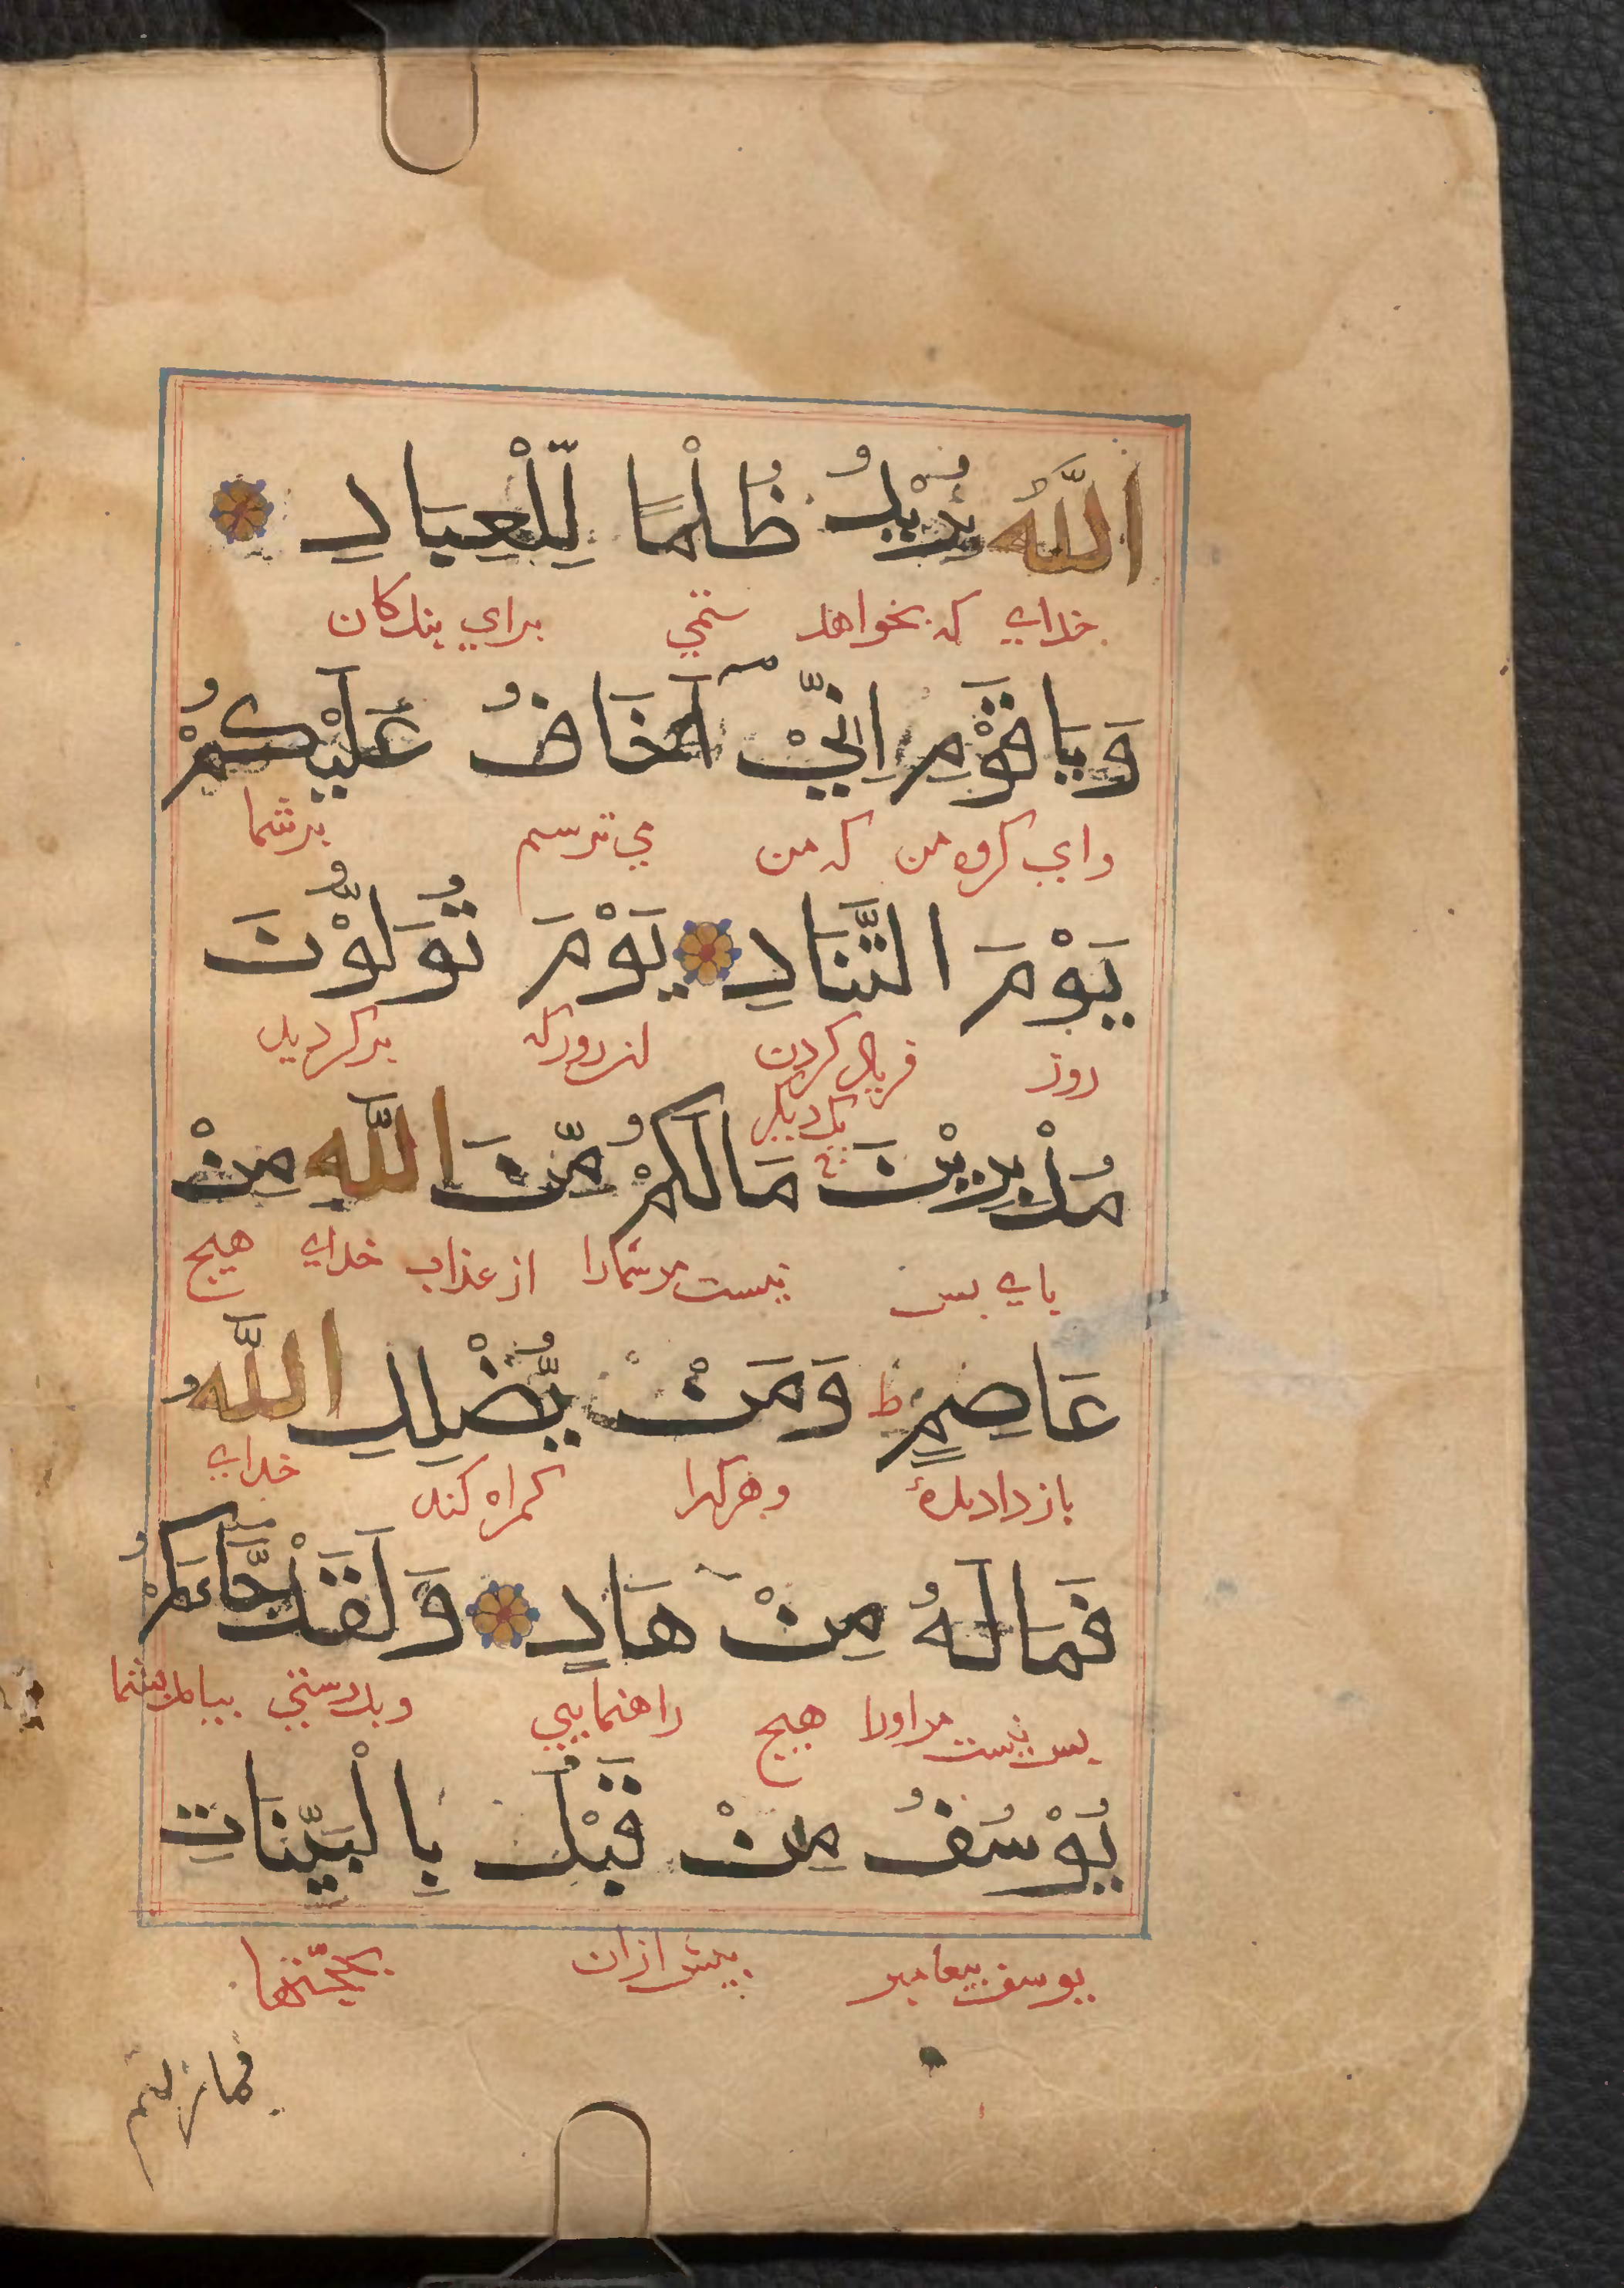 اللَّهُ يُرِيْدُ ظُلْمًا لِّلْعِبَادِ
خدای که بخواهد ستمی برای بندکان
وَيَاقَوْمِ اِنِّيْٓ اَخَافُ عَلَيْكُمْ
وای کروه من که من می ترسم برشما
يَوْمَ التَّنَادِ يَوْمَ تُوَلُّوْنَ
روز فریاد کردن ان روز که برکردید
یک دیکر
مُدْبِرِيْنَ مَالَكُمْ مِّنَ اللَّهِ مِنْ
بای بس نیست مرشمارا از عذاب خدای هیج
عَاصِمٍ ط وَمَنْ يُّضْلِلِ اللَّهُ
باز دارندهٔ وهرکرا کمراه کند خدای
فَمَالَهُ مِنْ هَادٍ وَلَقَدْ جَّاءَكُمْ
بس نیست مر اورا هیج راهنمایی وبدرستی بیامد بشما
يُوْسُفُ مِنْ قَبْلُ بِالْبَيِّنَاتِ
یوسف بیغامبر بیش ازان بحجّتها
فمازلتم